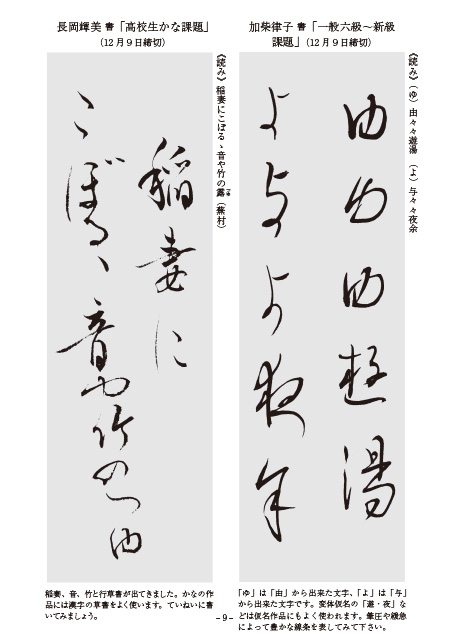 加柴律子 書「一般六級～新級
課題」（12月9日締切）
《読み》（ゆ）由々々遊湯　（よ）与々々夜余
ゆゆゆ遊湯
よよよ夜余
「ゆ」は「由」から出来た文字、「よ」は「与」
から出来た文字です。変体仮名の「遊・夜」な
どは仮名作品にもよく使われます。筆圧や緩急
によって豊かな線条を表してみて下さい。
長岡輝美 書「高校生かな課題」
（12月9日締切）
《読み》稲妻にこぼるゝ音や竹の露（蕪村）
ゆ
稲妻に
こぼるゝ
音や竹の
由
稲妻、音、竹と行草書が出てきました。かなの作
品には漢字の草書をよく使います。ていねいに書
いてみましょう。
- 9 -